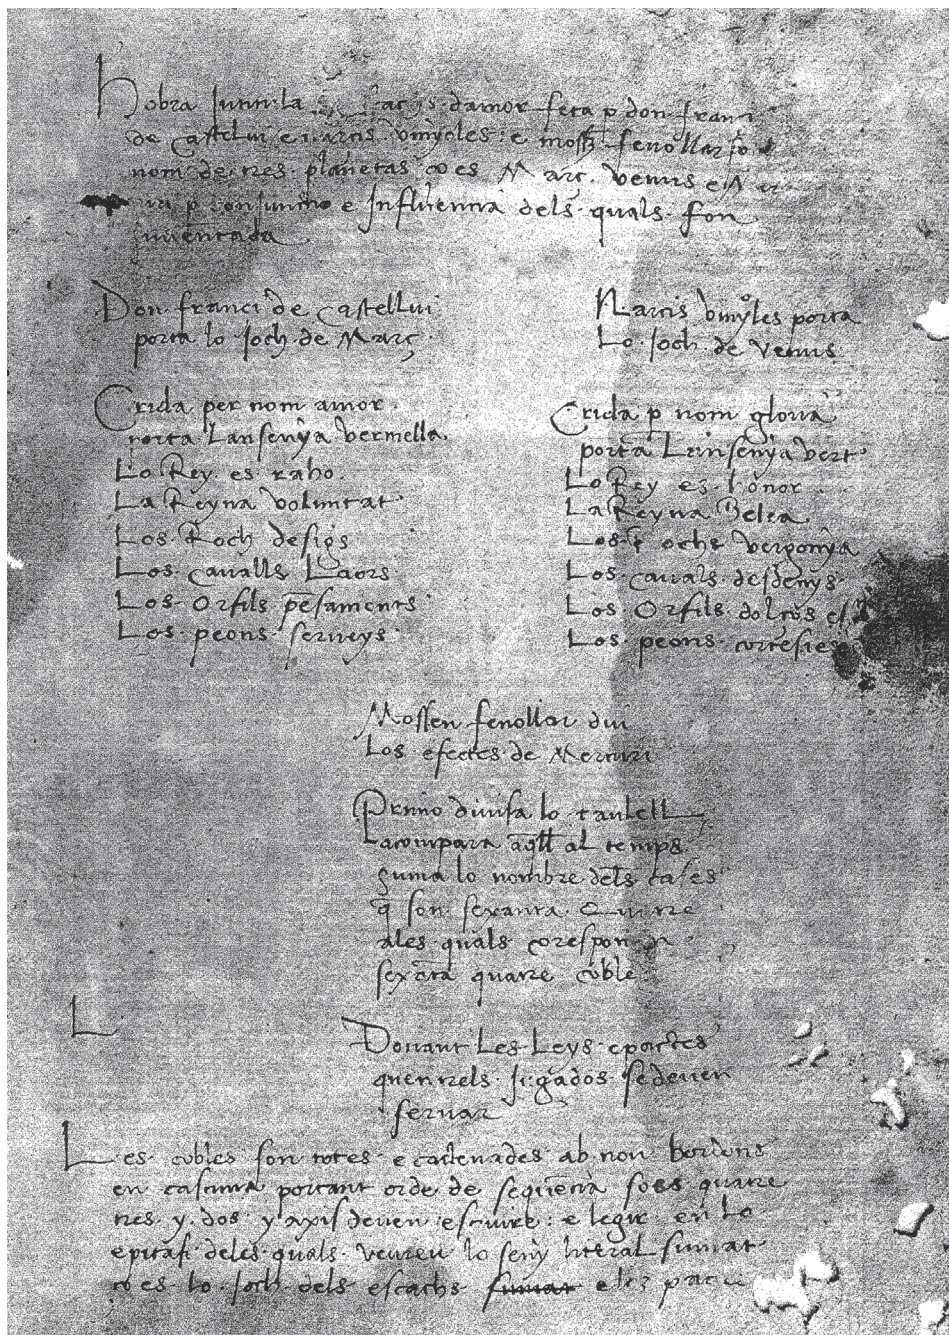 hobra Jntitula da Scachs damor feta p don franci
de Castelui e narcis vinyoles e mossẽ fenollar so
nom de tres planetas co es Març. Venus e Mer
curi p conjunctio e Jnfluencia dels quals fon
jnuentada
Don franci de Castellui
porta lo Joch de Març.
Narcis vinyoles porta
Lo Joch de Venus
Crida per nom amor.
porta Lansenya vermella.
Lo Rey es raho.
La Reyna voluntat
Los Roch desigs
Los cavalls Laors
Los Orfils pēsaments
Los peons serveys
Crida p nom gloria
porta Lansenya vert
Lo Rey es honor
La Reyna Belea
Los Rochs vergonya
Los cavals desdenys
Los Orfils dolços es
Los peons cortesies
Mossen fenollar diu
Los efectes de Mercuri
Primo divisa lo taulell
Lacompara aq̄ll al temps
suma lo nombre dels cases
q̄ son sexanta Quatre
ales quals corespon
sexāta quatre coble
L
Donant Les Leys e pactes
quentrels jugados se deuen
seruar
Les cobles son totes encadenades ab nou bordons
en cascuna portant orde de sequencia soes quatre
tres y dos y axis deuen escriure e legir en la
epitafi deles quals veureu lo seny literal sumat
co es lo Joch dels escachs e les